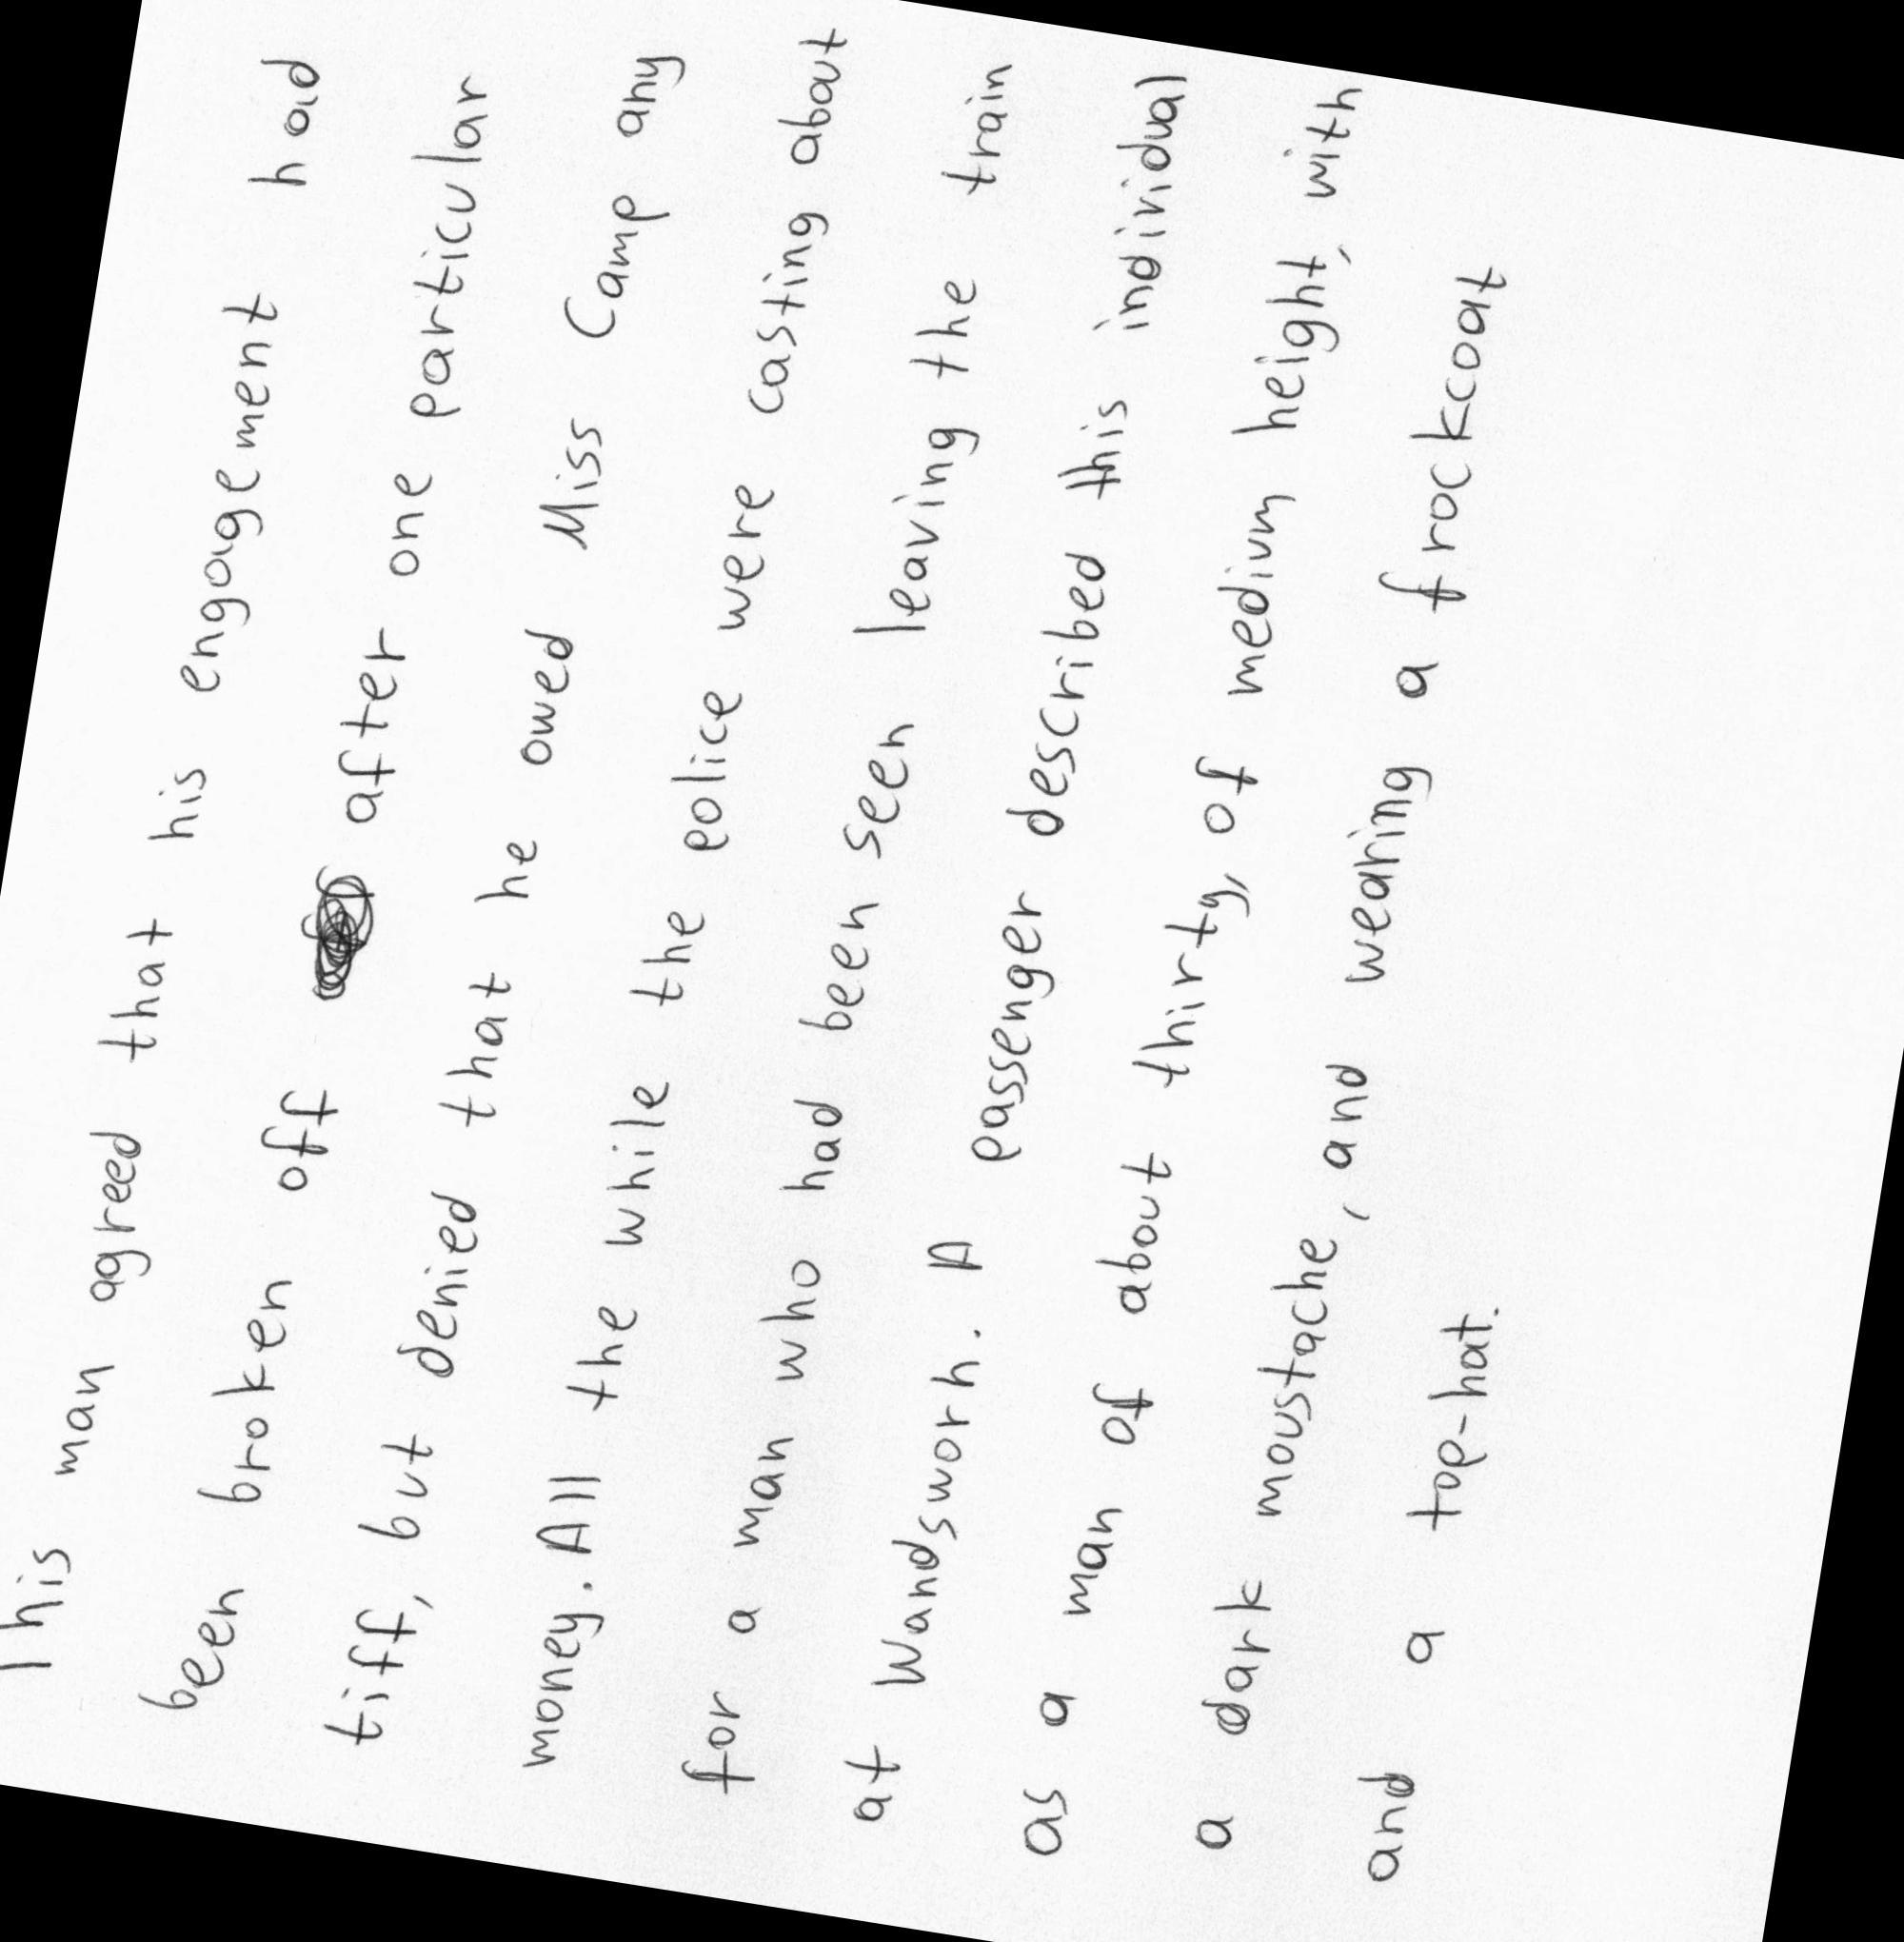 This man agreed that his engagement had
been broken off after one particular
tiff, but denied that he owed Miss Camp any
money. All the while the police were casting about
for a man who had been seen leaving the train
at Wandsworh. A passenger described this individual
as a man of about thirty, of medium height, with
a dark moustache, and wearing a frockcoat
and a top-hat.